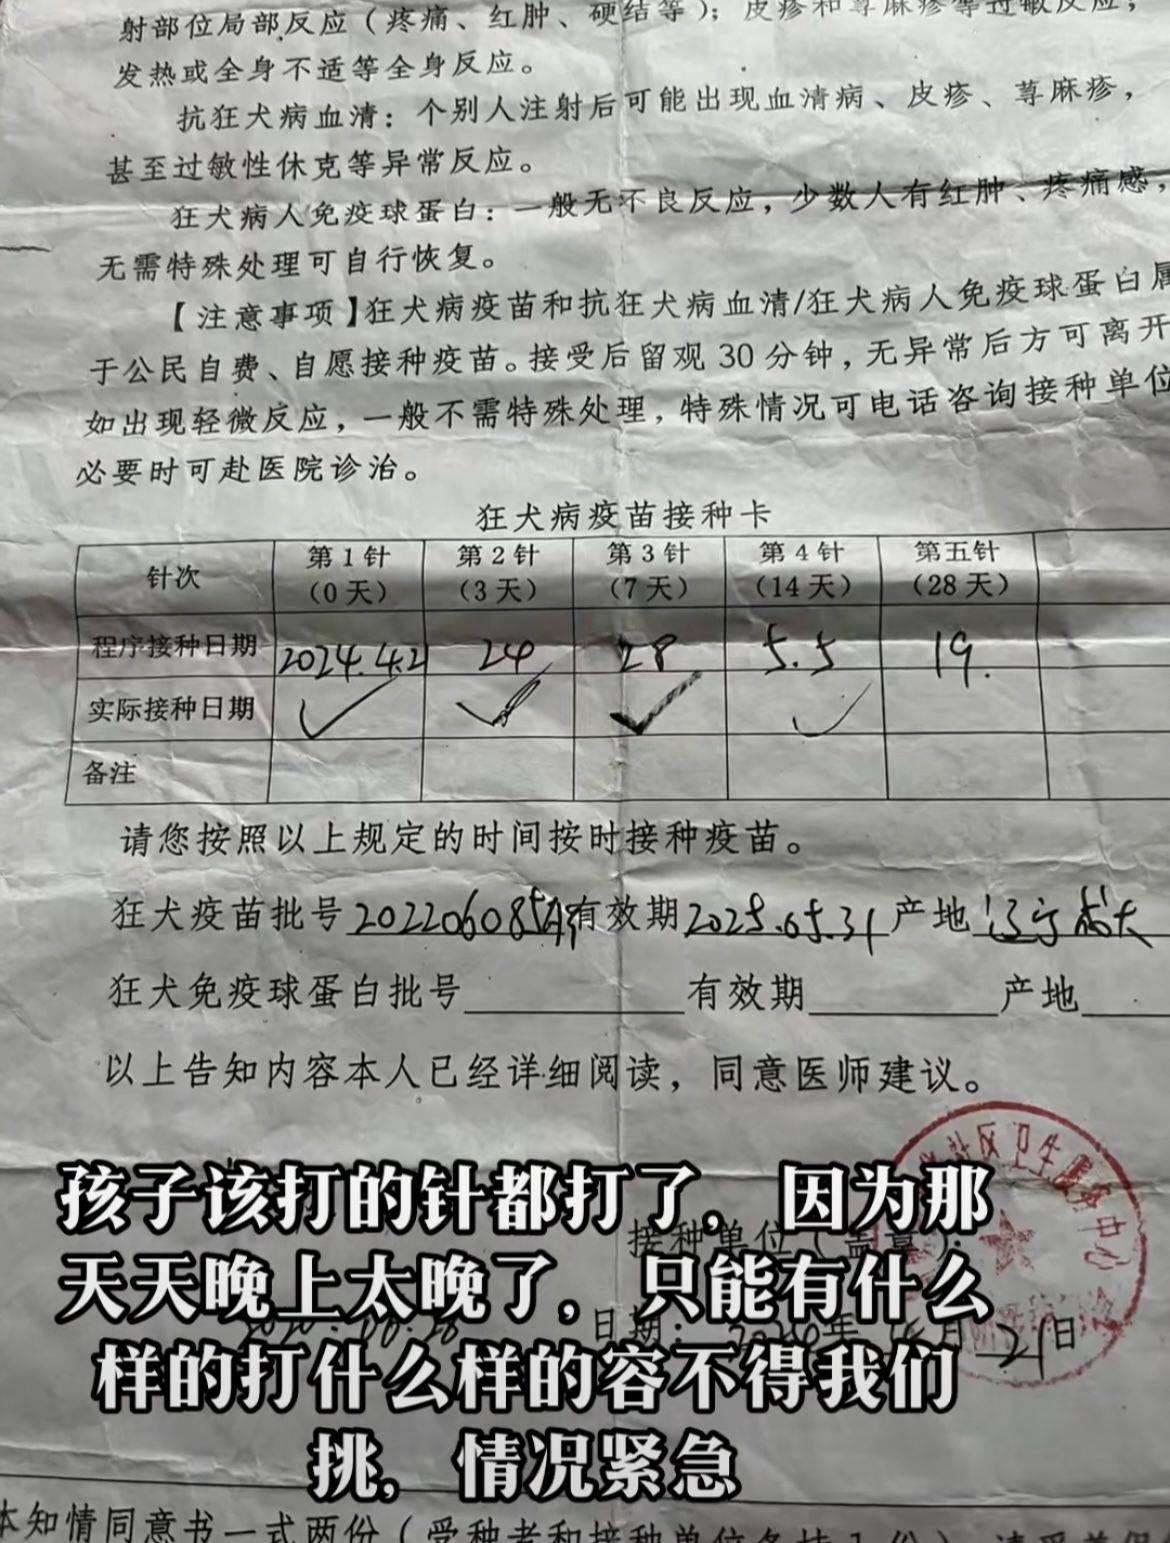 射部位局部反应（疼痛、红肿、硬结等）；皮疹和荨麻疹等过敏反应；
发热或全身不适等全身反应。
抗狂犬病血清：个别人注射后可能出现血清病、皮疹、荨麻疹，
甚至过敏性休克等异常反应。
狂犬病人免疫球蛋白：一般无不良反应，少数人有红肿、疼痛感，
无需特殊处理可自行恢复。
【注意事项】狂犬病疫苗和抗狂犬病血清/狂犬病人免疫球蛋白属
于公民自费、自愿接种疫苗。接受后留观 30 分钟，无异常后方可离开
如出现轻微反应，一般不需特殊处理，特殊情况可电话咨询接种单位
必要时可赴医院诊治。
狂犬病疫苗接种卡
针次 第1针（0天） 第2针（3天） 第3针（7天） 第4针（14天） 第五针（28天）
程序接种日期 2024.4.21 24 28 5.5 19.
实际接种日期 ✓ ✓ ✓ ✓
备注
请您按照以上规定的时间按时接种疫苗。
狂犬疫苗批号 202206085 有效期 2025.05.31 产地 辽宁成大
狂犬免疫球蛋白批号 有效期 产地
以上告知内容本人已经详细阅读，同意医师建议。
社区卫生服务中心
接种单位（盖章）：
日期： 年 月 21日
孩子该打的针都打了。因为那
天天晚上太晚了，只能有什么
样的打什么样的容不得我们
挑，情况紧急
本知情同意书一式两份（受种者和接种单位各持1份）